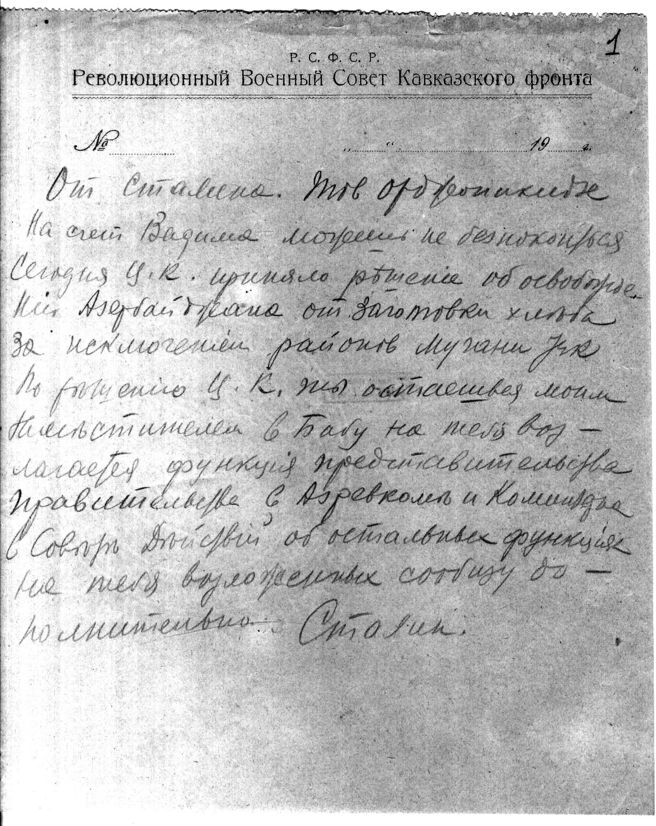 1
Р. С. Ф. С. Р.
Революционный Военный Совет Кавказского фронта
№ „ “ 19 г.
От Сталина. Тов Орджоникидзе
На счет Вадима можешь не безпокоиться
Сегодня Ц.К. приняло рѣшение об освобожде-
нии Азербайджана от заготовки хлѣба
За исключением районов Мугани
По рѣшению Ц.К. ты остаешься моим
Замѣстителем в Баку на тебя воз—
лагается функция представительства
правительства в Азревкомѣ и
в Совѣтѣ Дѣйствий об остальных функциях
на тебя возложенных сообщу до—
полнительно Сталин.